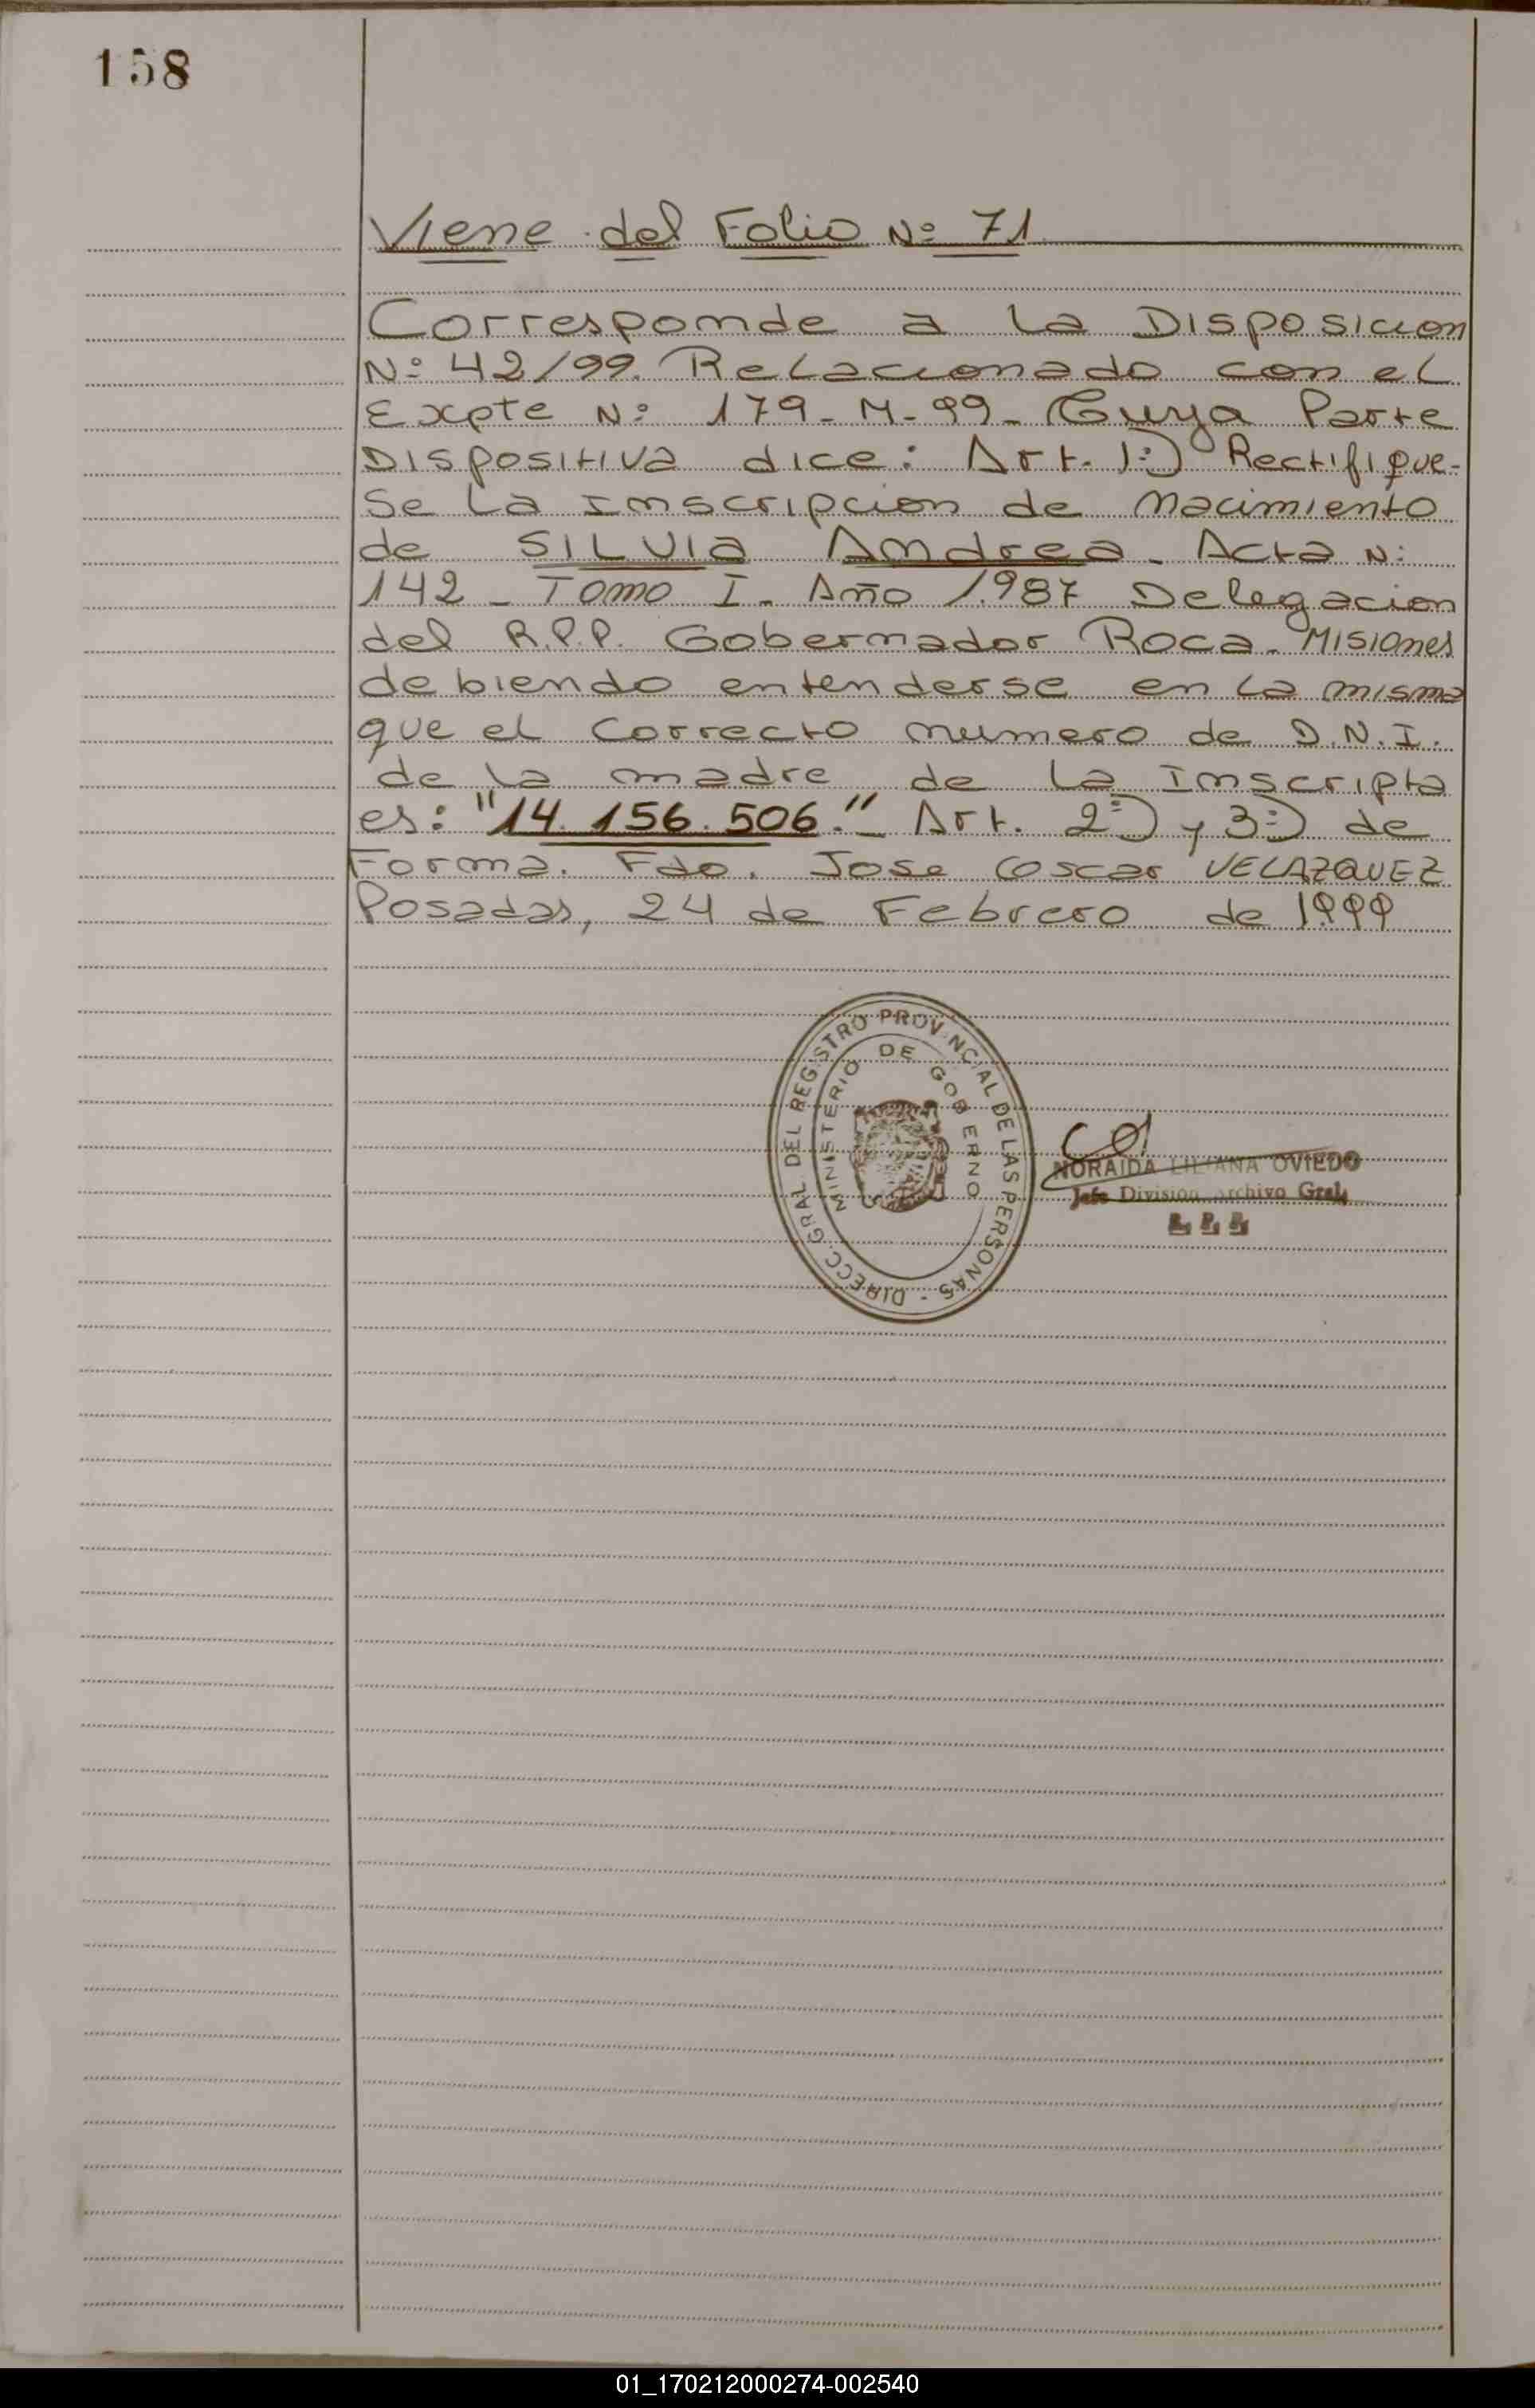 158
Viene del Folio Nº 71
Corresponde a la Disposicion
Nº 42/99. Relacionado con el
Expte Nº 179-M-99- Cuya Parte
Dispositiva dice: Art. 1º) Rectifique-
se la Inscripcion de nacimiento
de SILVIA Andrea - Acta Nº
142 - Tomo I - Año 1.987 Delegacion
del R.P.P. Gobernador Roca - Misiones
debiendo entenderse en la misma
que el correcto numero de D.N.I.
de la madre de la Inscripta
es: "14.156.506." Art. 2º) y 3º) de
Forma. Fdo. Jose Oscar VELAZQUEZ
Posadas, 24 de Febrero de 1999
DIRECC. GRAL DEL REGISTRO PROVINCIAL DE LAS PERSONAS -
MINISTERIO DE GOBIERNO
NORAIDA LILIANA OVIEDO
Jefe División Archivo Gral.
01_170212000274-002540